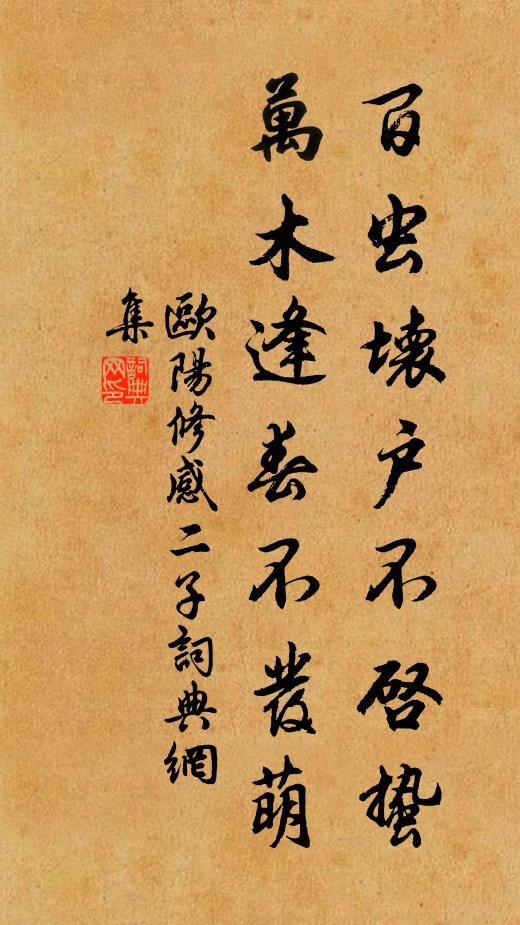 百虫壞户不啓蟄
萬木逢春不發萌
歐陽修感二子詞典網
集
詞典
网印